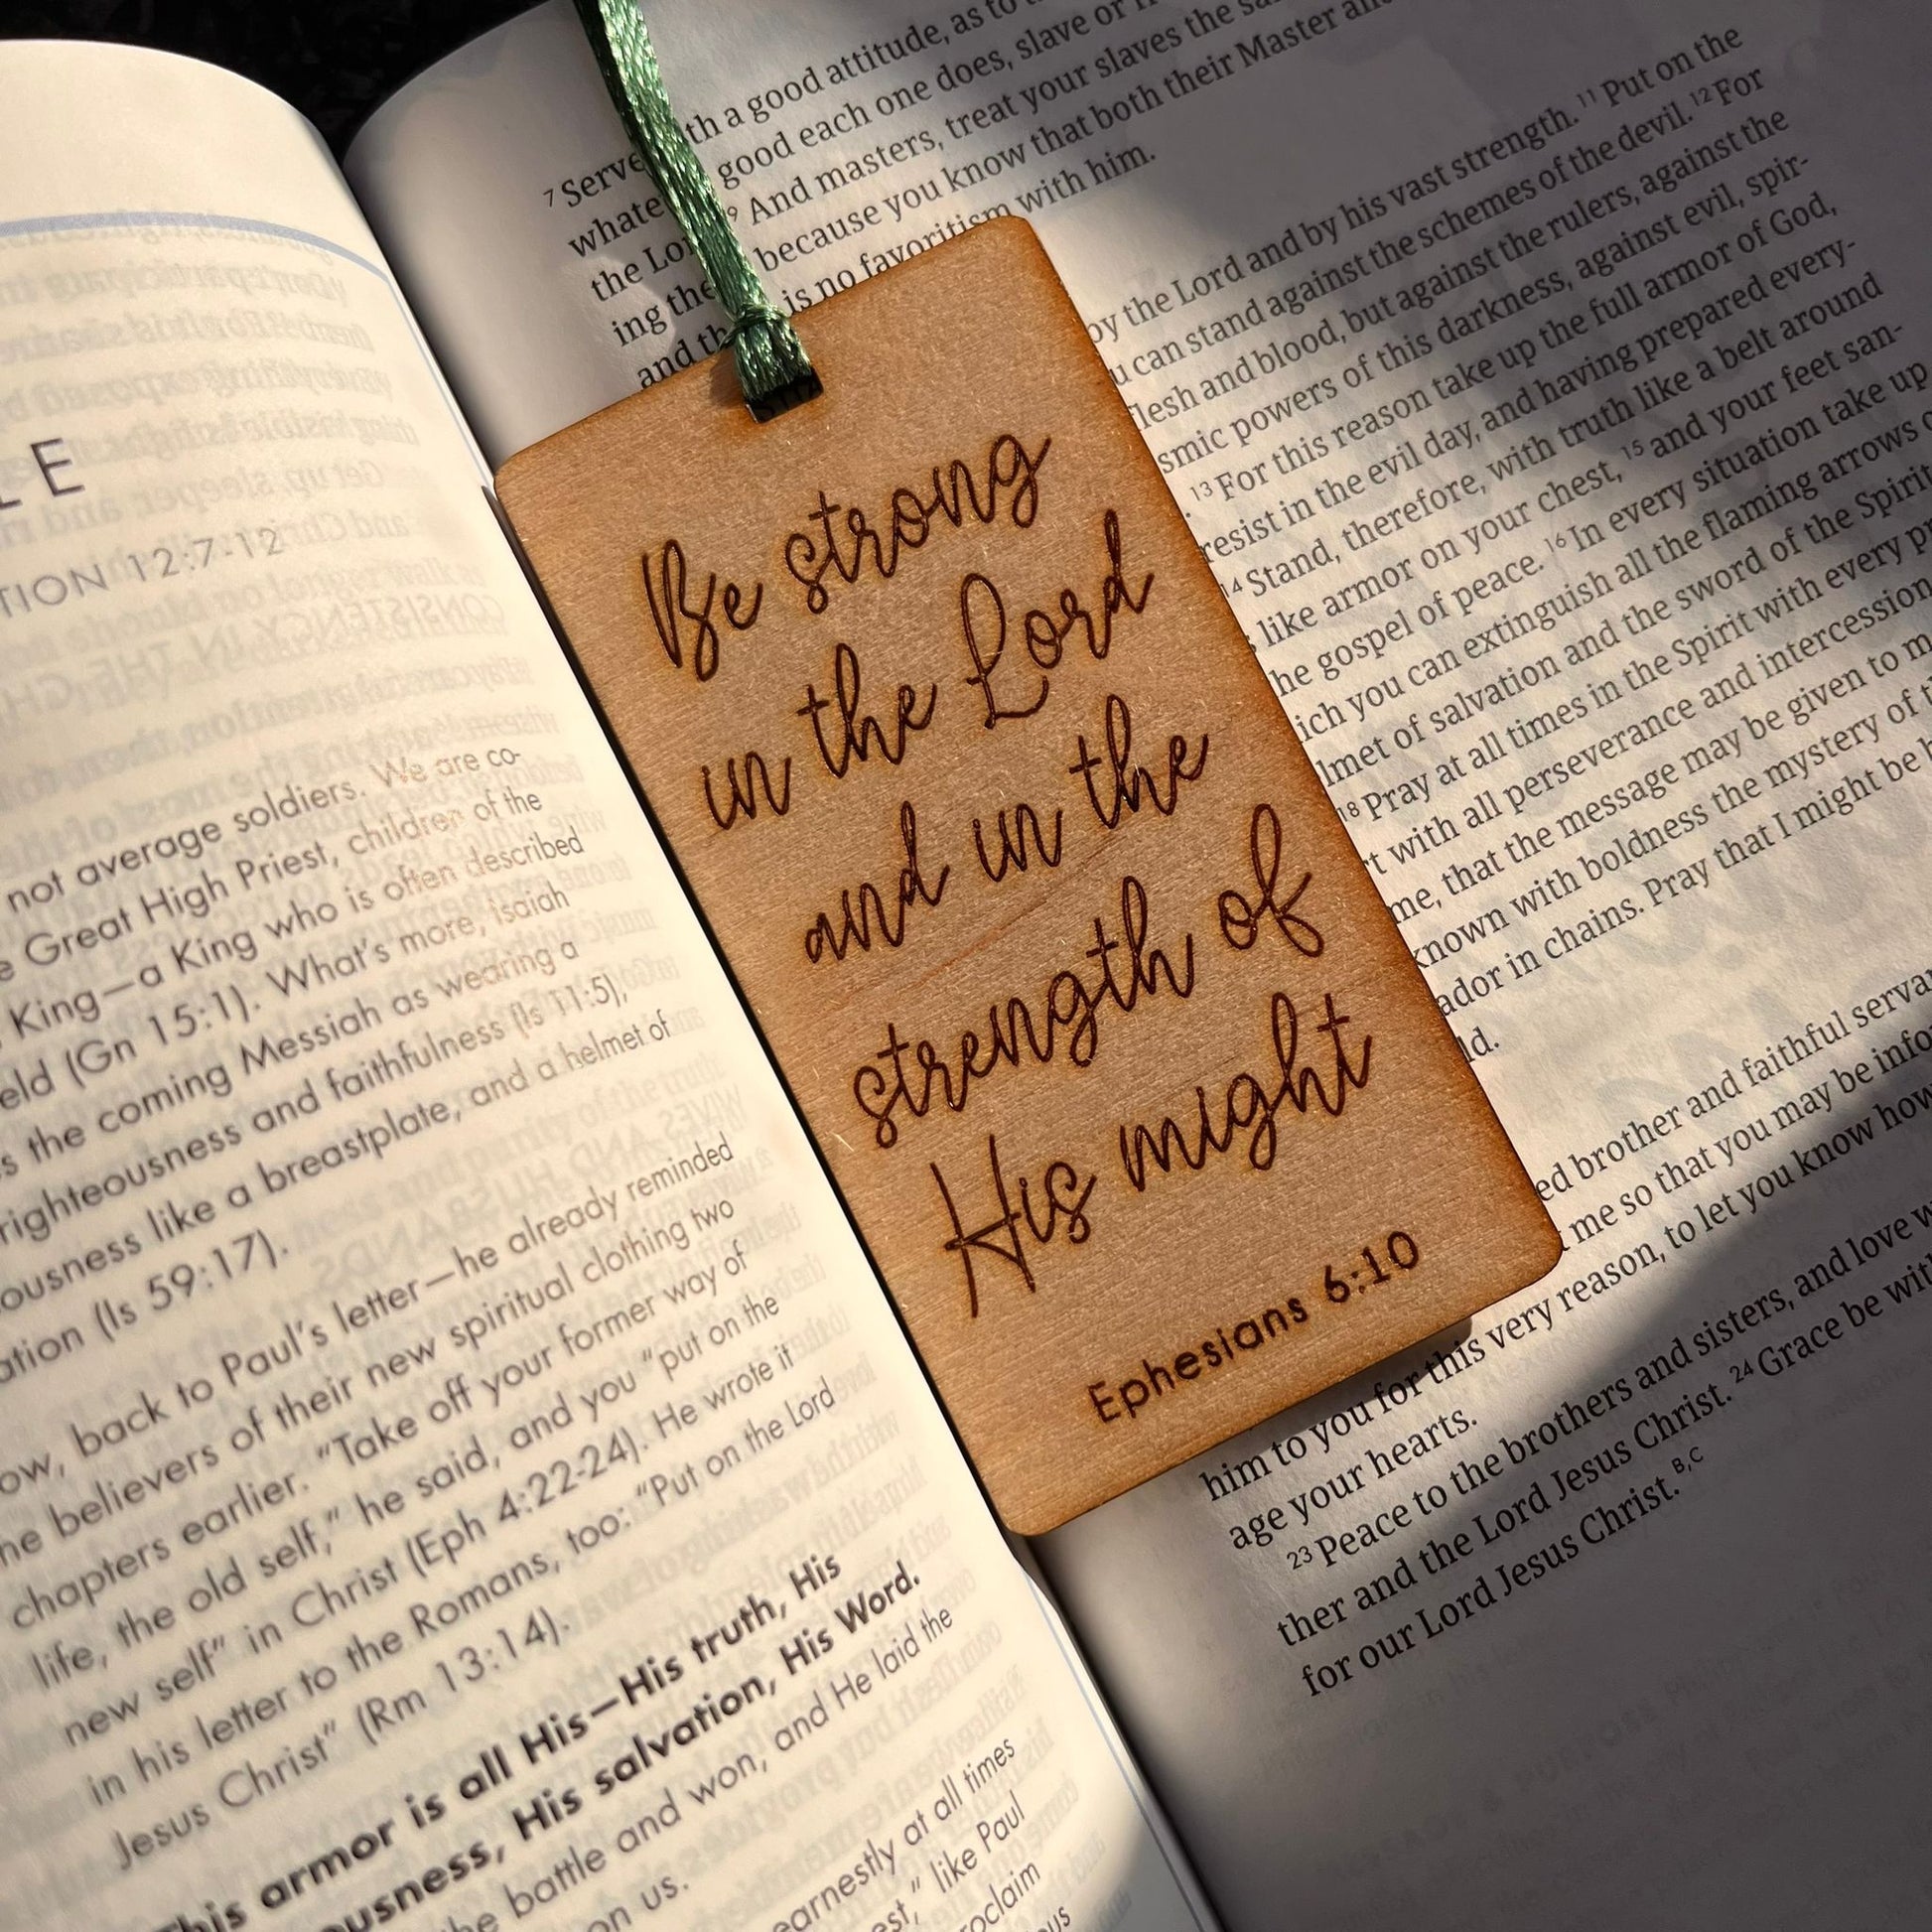 LE
TION 12:7-12
not average soldiers. We are co-
Great High Priest, children of the
King—a King who is often described
eld (Gn 15:1). What's more, Isaiah
s the coming Messiah as wearing a
righteousness and faithfulness (Is 11:5),
ousness like a breastplate, and a helmet of
ation (Is 59:17).
ow, back to Paul's letter—he already reminded
he believers of their new spiritual clothing two
chapters earlier. "Take off your former way of
life, the old self," he said, and you "put on the
new self" in Christ (Eph 4:22-24). He wrote it
in his letter to the Romans, too: "Put on the Lord
Jesus Christ" (Rm 13:14).
This armor is all His—His truth, His
ousness, His salvation, His Word.
he battle and won, and He laid the
on us.
earnestly at all times
est," like Paul
oclaim
Be strong
in the Lord
and in the
strength of
His might
Ephesians 6:10
7 Serve th a good attitude, as to
whate good each one does, slave or
the Lor 9 And masters, treat your slaves the
ing the because you know that both their Master and
and th is no favoritism with him.
by the Lord and by his vast strength. 11 Put on the
u can stand against the schemes of the devil. 12 For
flesh and blood, but against the rulers, against the
smic powers of this darkness, against evil, spir-
13 For this reason take up the full armor of God,
resist in the evil day, and having prepared every-
14 Stand, therefore, with truth like a belt around
like armor on your chest, 15 and your feet san-
he gospel of peace. 16 In every situation take up
ich you can extinguish all the flaming arrows
lmet of salvation and the sword of the Spirit
18 Pray at all times in the Spirit with every
t with all perseverance and intercession
me, that the message may be given to
known with boldness the mystery of
ador in chains. Pray that I might be
ld.
ed brother and faithful serva
me so that you may be info
him to you for this very reason, to let you know how
age your hearts.
23 Peace to the brothers and sisters, and love
ther and the Lord Jesus Christ. 24 Grace be with
for our Lord Jesus Christ. B,C